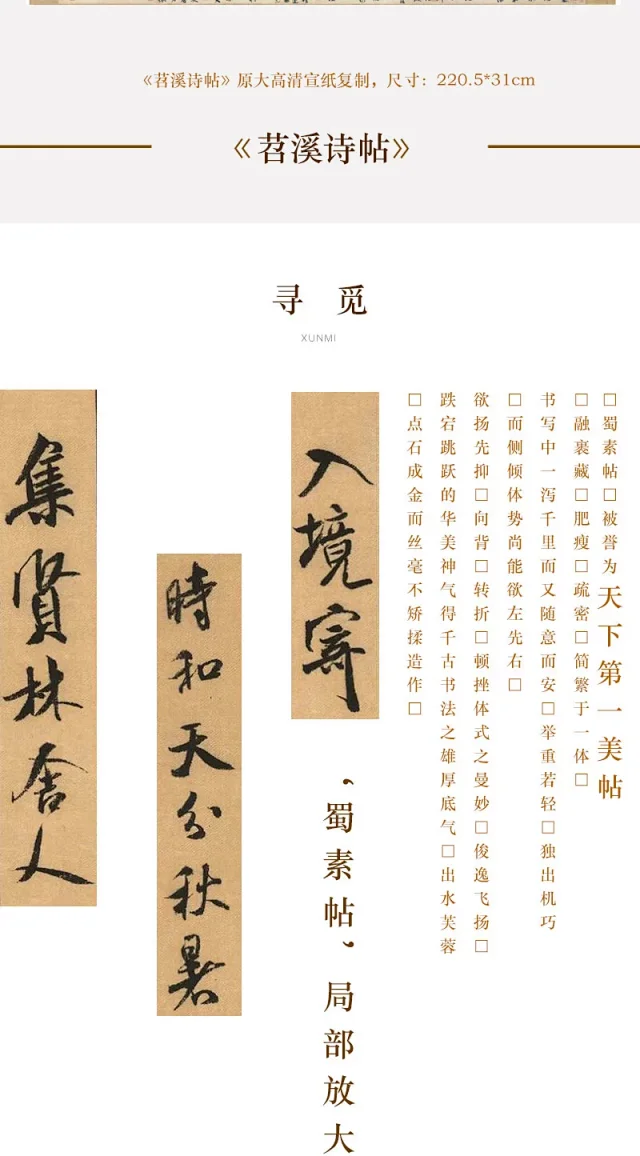 《苕溪诗帖》原大高清宣纸复制，尺寸：220.5*31cm
《苕溪诗帖》
寻 觅
XUNMI
□蜀素帖□被誉为天下第一美帖
□融裹藏□肥瘦□疏密□简繁于一体□
书写中一泻千里而又随意而安□举重若轻□独出机巧
□而侧倾体势尚能欲左先右□
欲扬先抑□向背□转折□顿挫体式之曼妙□俊逸飞扬□
跌宕跳跃的华美神气得千古书法之雄厚底气□出水芙蓉
□点石成金而丝毫不矫揉造作□
入境寄
‘蜀素帖’局部放大
時和天分秋暑
集賢林舍人